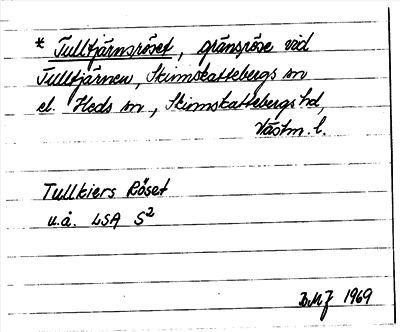 * Tulltjärnsröset, gränsröse vid
Tulltjärnen, Skinnskattebergs sn
el. Heds sn, Skinnskattebergs hd,
Västm. l.
Tullkiers Röset
u.å. LSA S²
1969